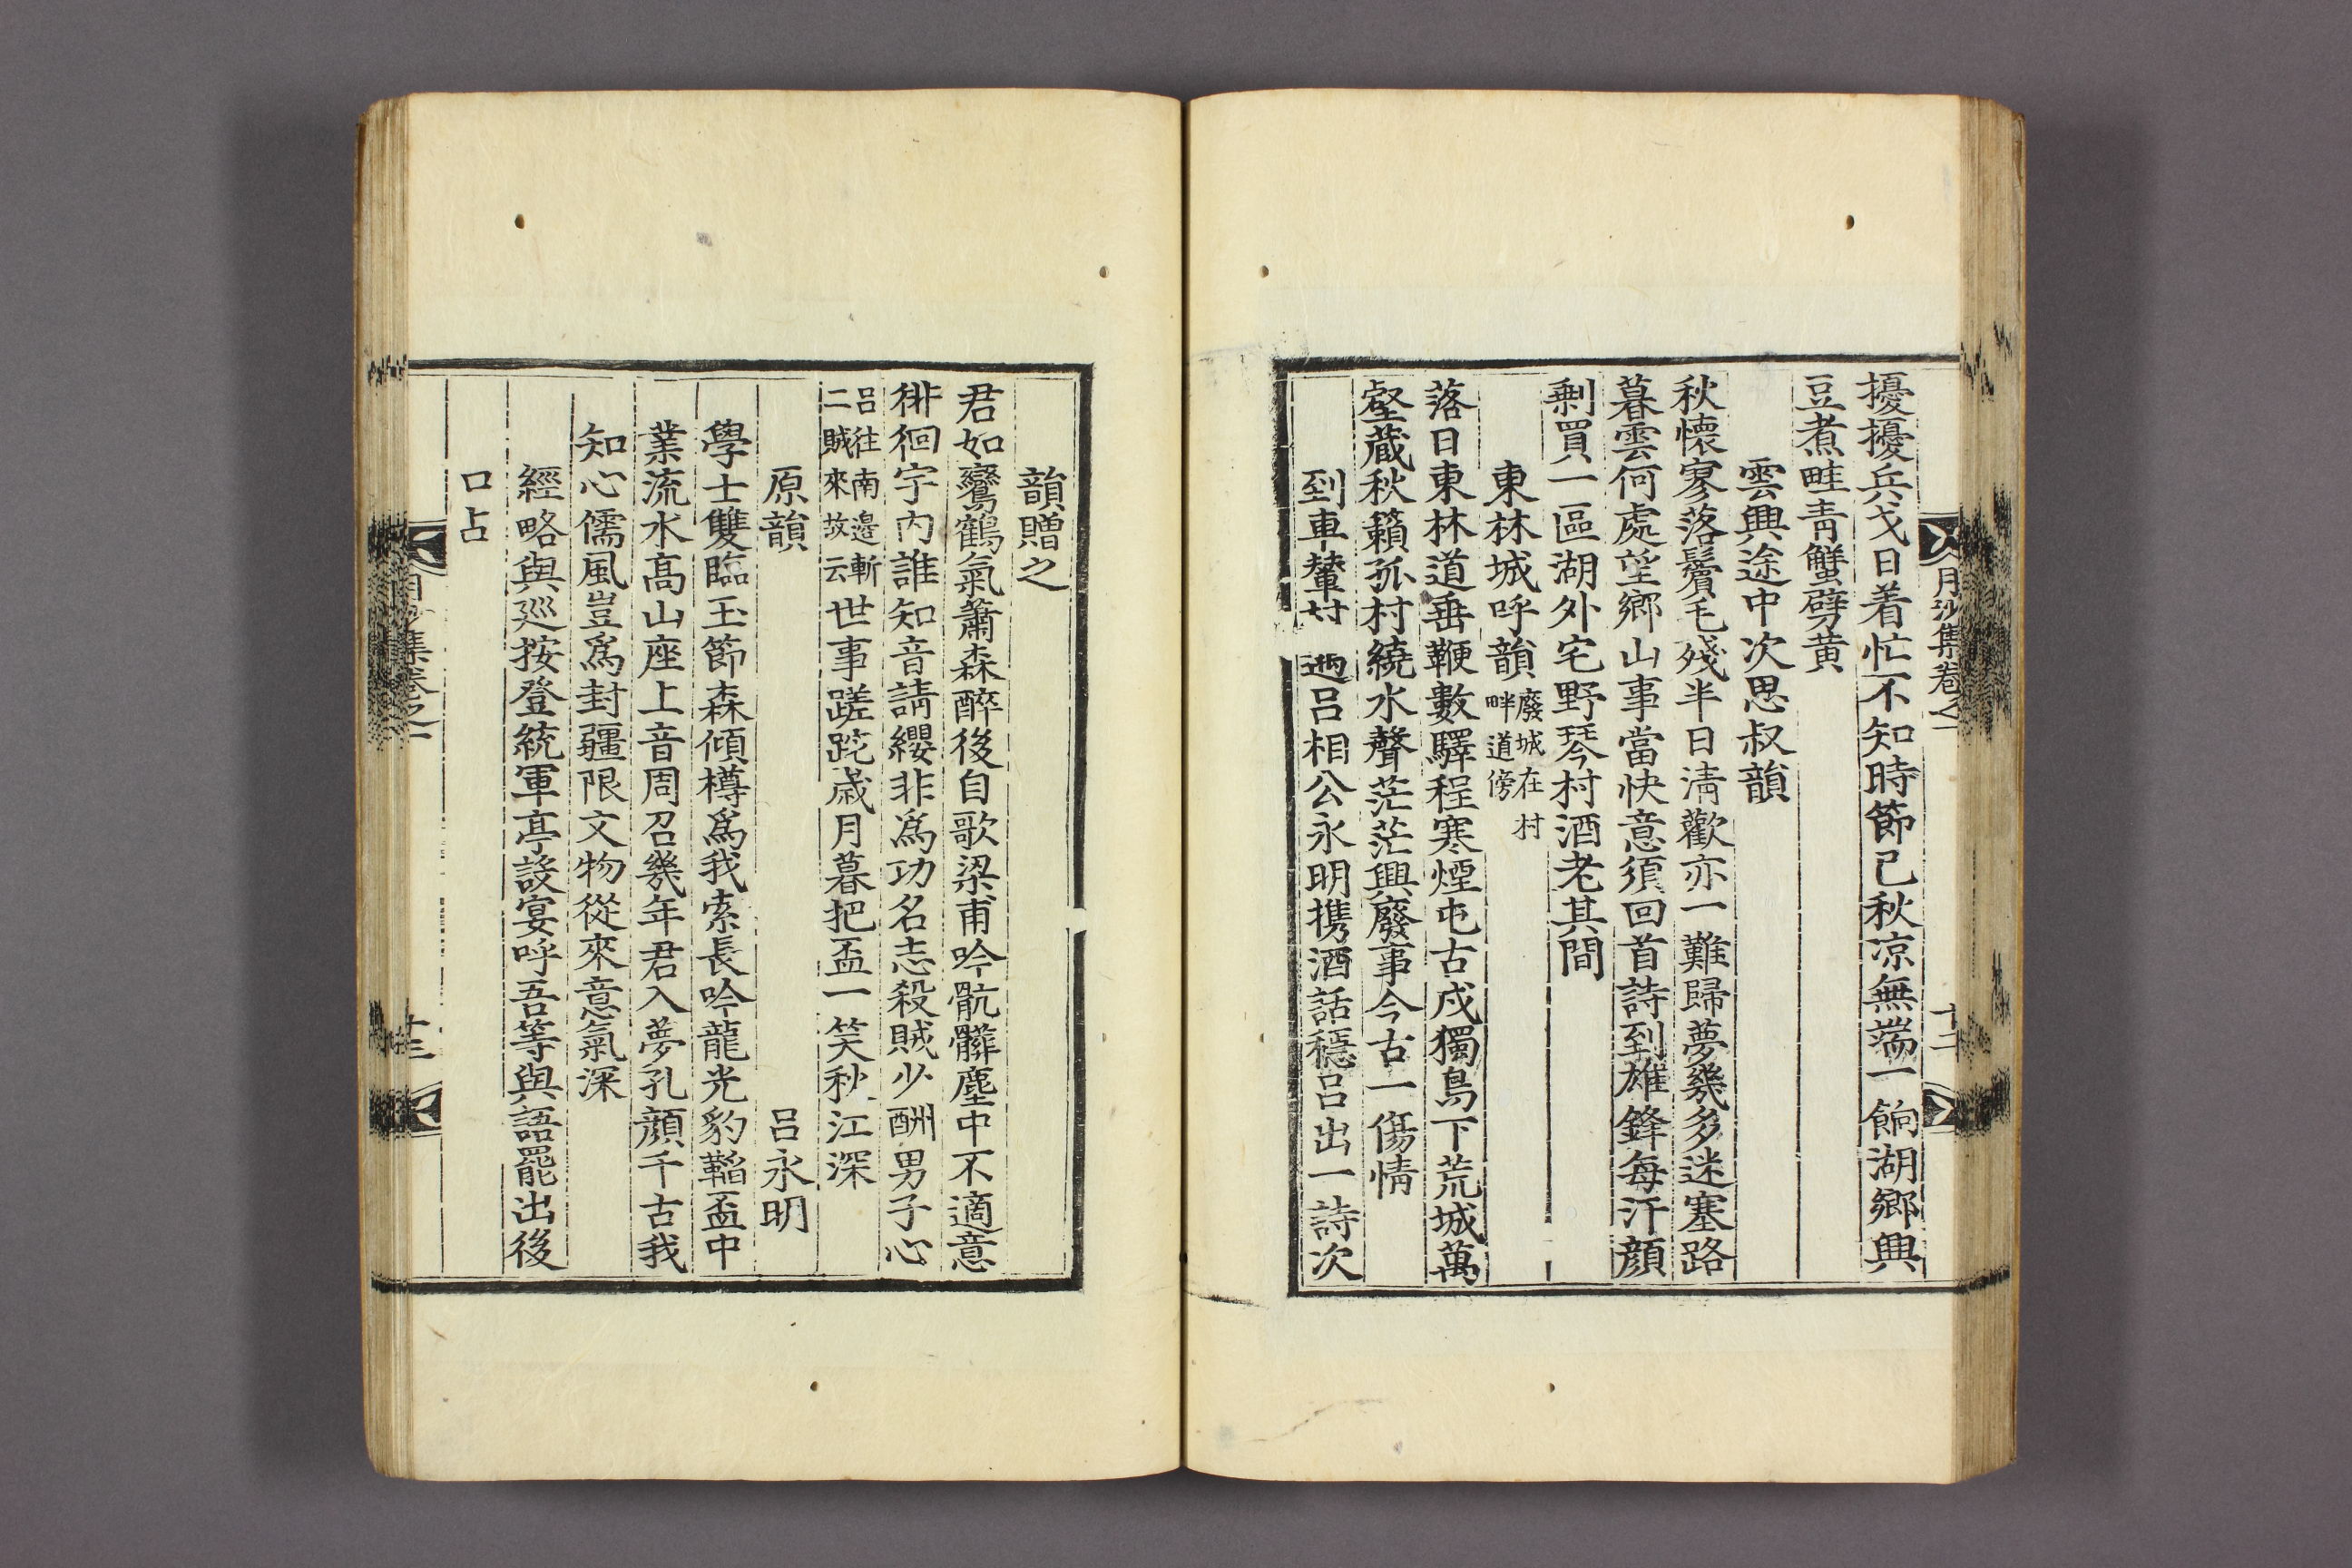 月沙集卷之一
十二
擾擾兵戈日着忙不知時節已秋凉無端一餉湖鄉興
豆煮畦靑蟹劈黃
雲興途中次思叔韻
秋懷寥落鬢毛殘半日淸歡亦一難歸夢幾多迷塞路
暮雲何處望鄉山事當快意須回首詩到雄鋒每汗顏
剩買一區湖外宅野琴村酒老其間
東林城呼韻廢城在村
畔道傍
落日東林道垂鞭數驛程寒煙屯古戍獨鳥下荒城萬
壑藏秋籟孤村繞水聲茫茫興廢事今古一傷情
到車輦村逈呂相公永明携酒話穩呂出一詩次
韻贈之
君如鸞鶴氣蕭森醉後自歌梁甫吟骯髒塵中不適意
徘徊宇內誰知音請纓非爲功名志殺賊少酬男子心
呂往南邊斬
二賊來故云世事蹉跎歲月暮把盃一笑秋江深
原韻 呂永明
學士雙臨玉節森傾樽爲我索長吟龍光豹韜盃中
業流水高山座上音周召幾年君入夢孔顏千古我
知心儒風豈爲封疆限文物從來意氣深
經略與巡按登統軍亭設宴呼吾等與語罷出後
口占
月沙集卷之一
十三